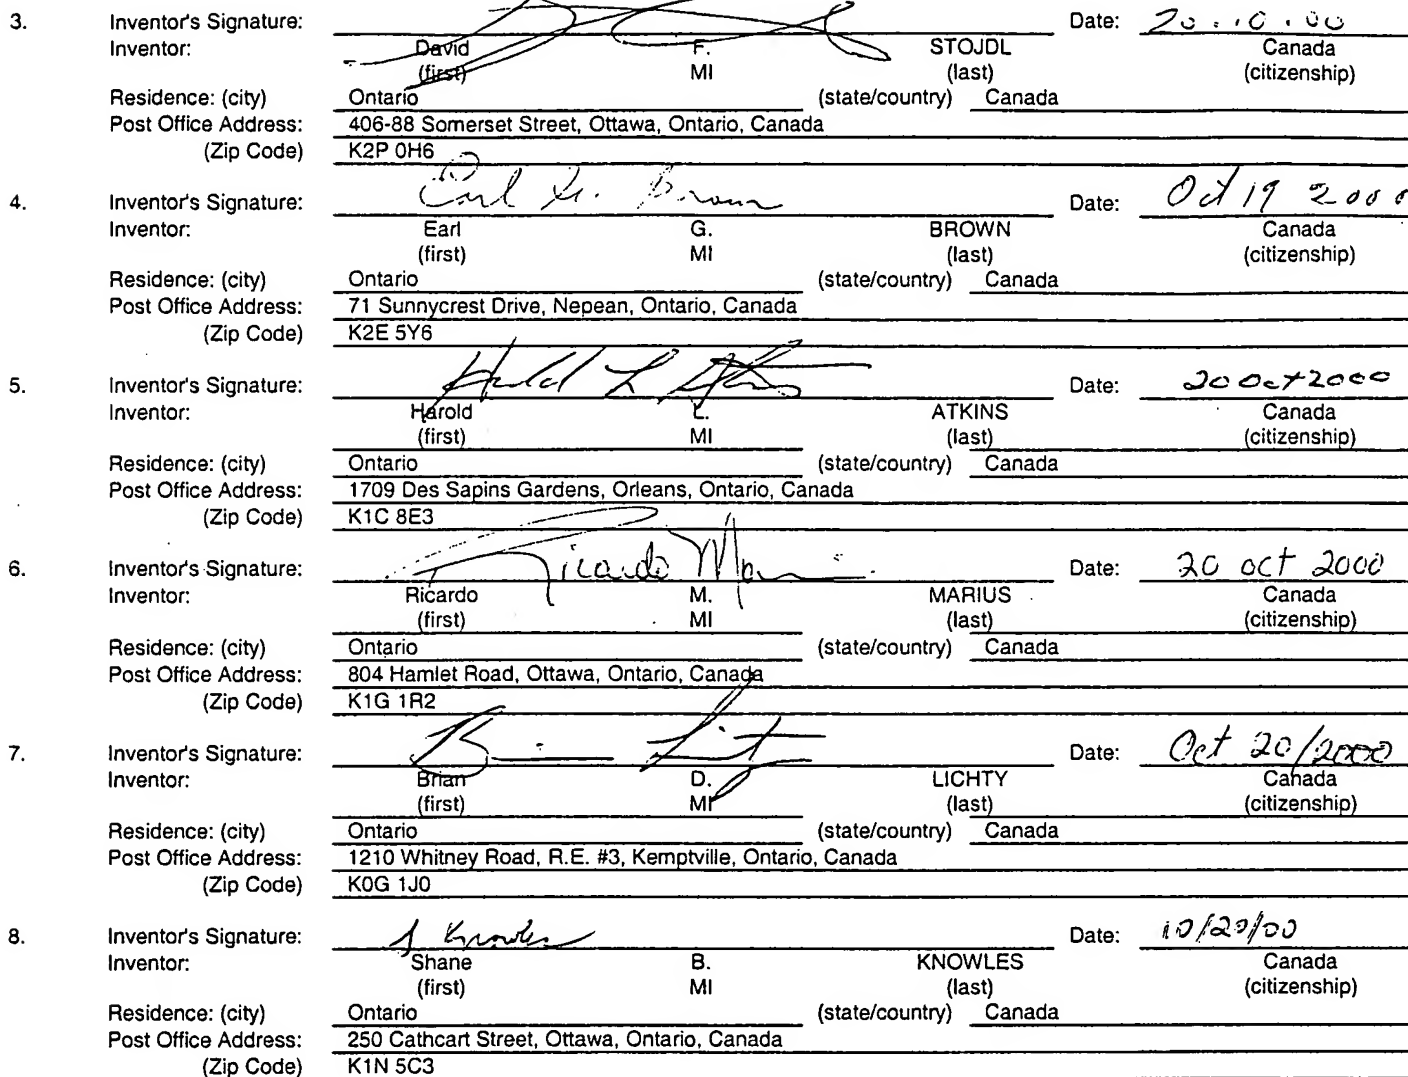 3. Inventor's Signature: Date: 20.10.00
Inventor: David F. STOJDL Canada
(first) MI (last) (citizenship)
Residence: (city) Ontario (state/country) Canada
Post Office Address: 406-88 Somerset Street, Ottawa, Ontario, Canada
(Zip Code) K2P 0H6
4. Inventor's Signature: Earl G. Brown Date: Oct 19 2000
Inventor: Earl G. BROWN Canada
(first) MI (last) (citizenship)
Residence: (city) Ontario (state/country) Canada
Post Office Address: 71 Sunnycrest Drive, Nepean, Ontario, Canada
(Zip Code) K2E 5Y6
5. Inventor's Signature: Harold L Atkins Date: 20 Oct 2000
Inventor: Harold L. ATKINS Canada
(first) MI (last) (citizenship)
Residence: (city) Ontario (state/country) Canada
Post Office Address: 1709 Des Sapins Gardens, Orleans, Ontario, Canada
(Zip Code) K1C 8E3
6. Inventor's Signature: Ricardo Marius Date: 20 oct 2000
Inventor: Ricardo M. MARIUS Canada
(first) MI (last) (citizenship)
Residence: (city) Ontario (state/country) Canada
Post Office Address: 804 Hamlet Road, Ottawa, Ontario, Canada
(Zip Code) K1G 1R2
7. Inventor's Signature: Date: Oct 20/2000
Inventor: Brian D. LICHTY Canada
(first) MI (last) (citizenship)
Residence: (city) Ontario (state/country) Canada
Post Office Address: 1210 Whitney Road, R.E. #3, Kemptville, Ontario, Canada
(Zip Code) K0G 1J0
8. Inventor's Signature: S Knowles Date: 10/20/00
Inventor: Shane B. KNOWLES Canada
(first) MI (last) (citizenship)
Residence: (city) Ontario (state/country) Canada
Post Office Address: 250 Cathcart Street, Ottawa, Ontario, Canada
(Zip Code) K1N 5C3